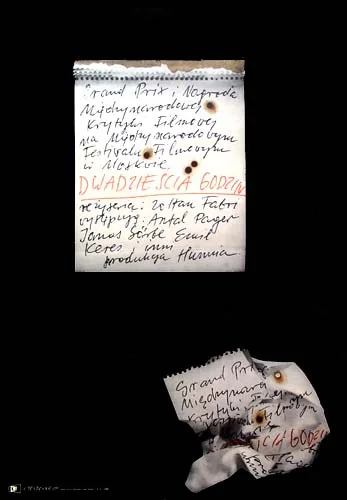 Grand Prix i Nagroda
Międzynarodowej
Krytyki Filmowej
na Międzynarodowym
Festiwalu Filmowym
w Moskwie
DWADZIEŚCIA GODZIN
reżyseria: Zoltan Fabri
występują: Antal Pager
Janos Görbe Emil
Keres i inni
produkcja Hunnia
Grand Prix
Międzynarod
Krytyki
CIA GODZI